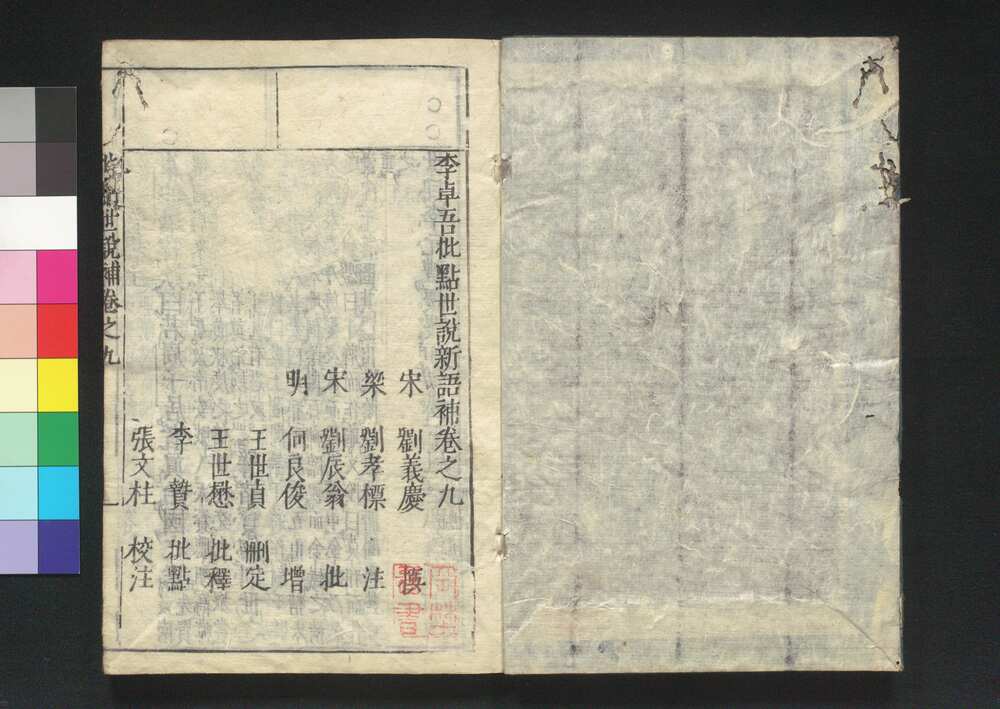 李卓吾批點世說新語補卷之九
宋 劉義慶 撰
梁 劉孝標 注
宋 劉辰翁 批
明 何良俊 增
王世貞 刪定
王世懋 批釋
李贄 批點
張文柱 校注
世說補卷之九 一